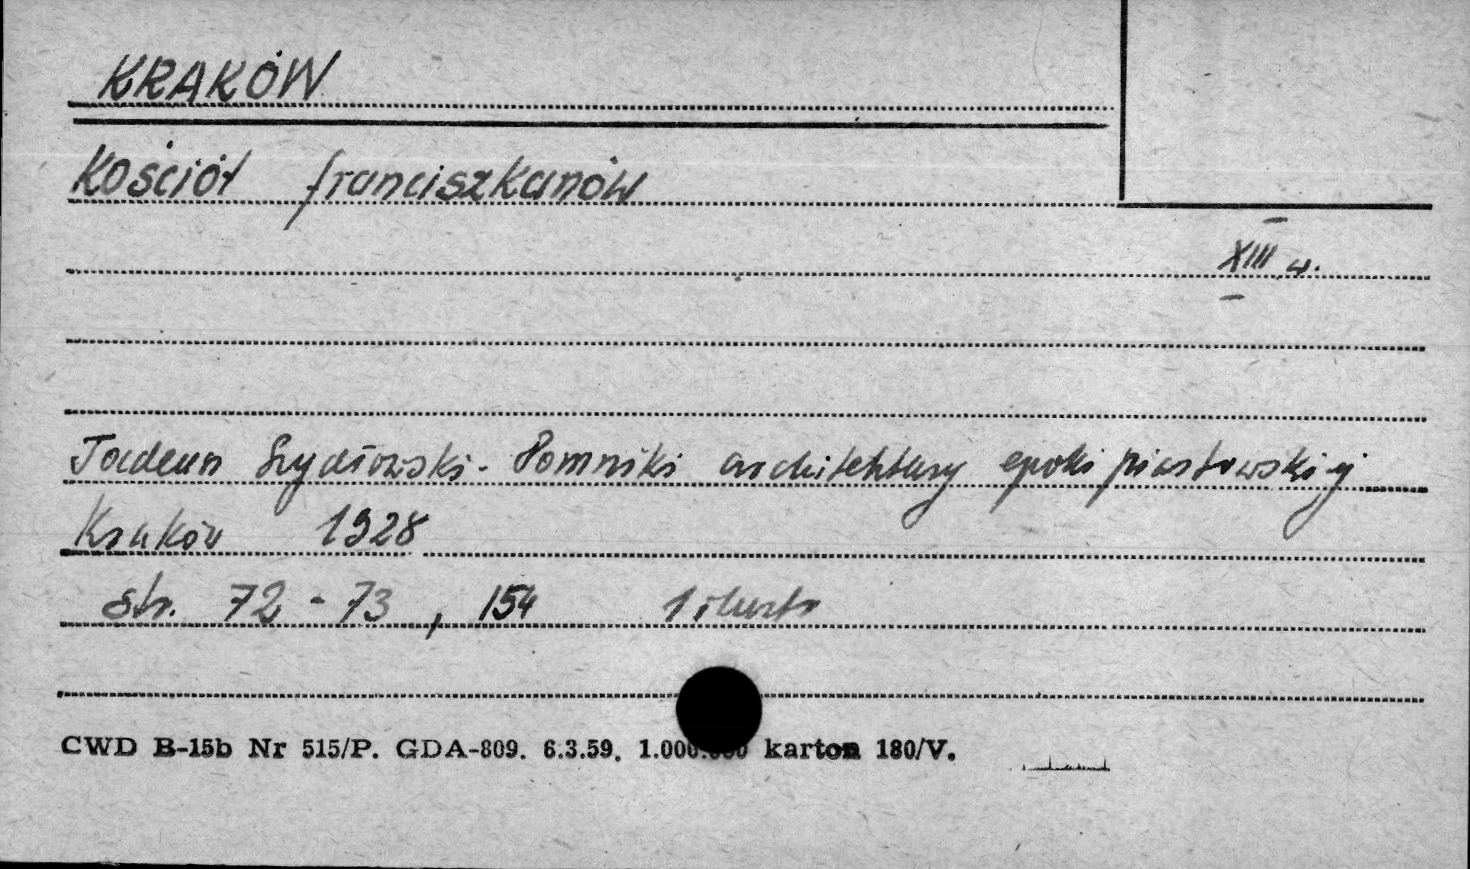 KRAKÓW
Kościół franciszkanów
XIII w.
Tadeusz Szydłowski - Pomniki architektury epoki piastowskiej
Kraków 1928
str. 72-73, 154 1 ilustr
CWD B-15b Nr 515/P. GDA-809. 6.3.59. 1.000.000 karton 180/V.